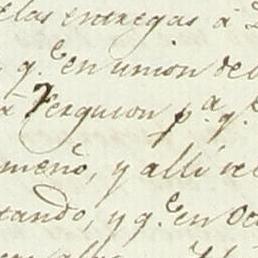 elas entregas á
q.e en union del
á Ferguson p.a q.e
meño, y alli se
tando, y q.e en Oc